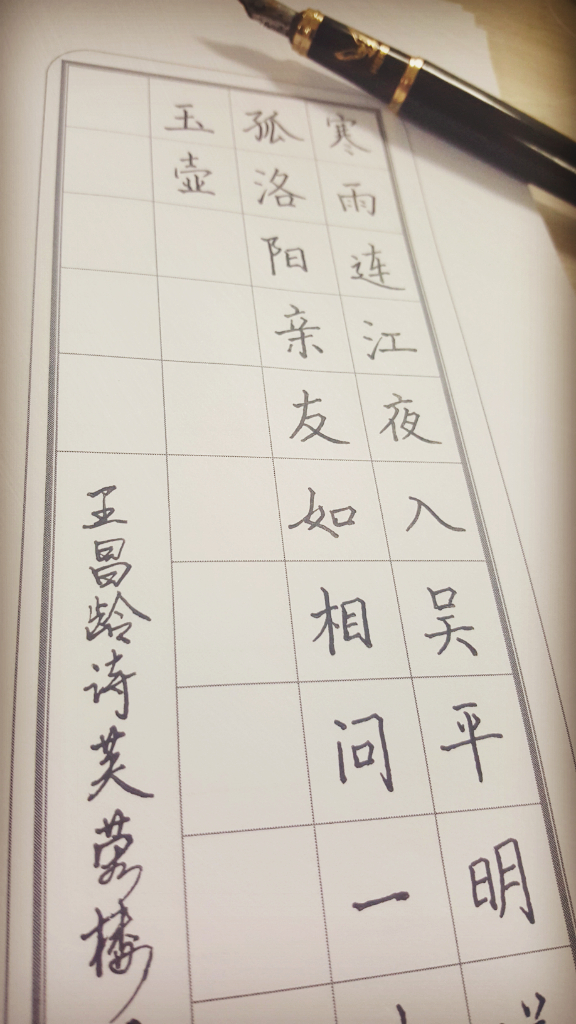 寒雨连江夜入吴平明
孤洛阳亲友如相问一
玉壶
王昌龄诗芙蓉楼